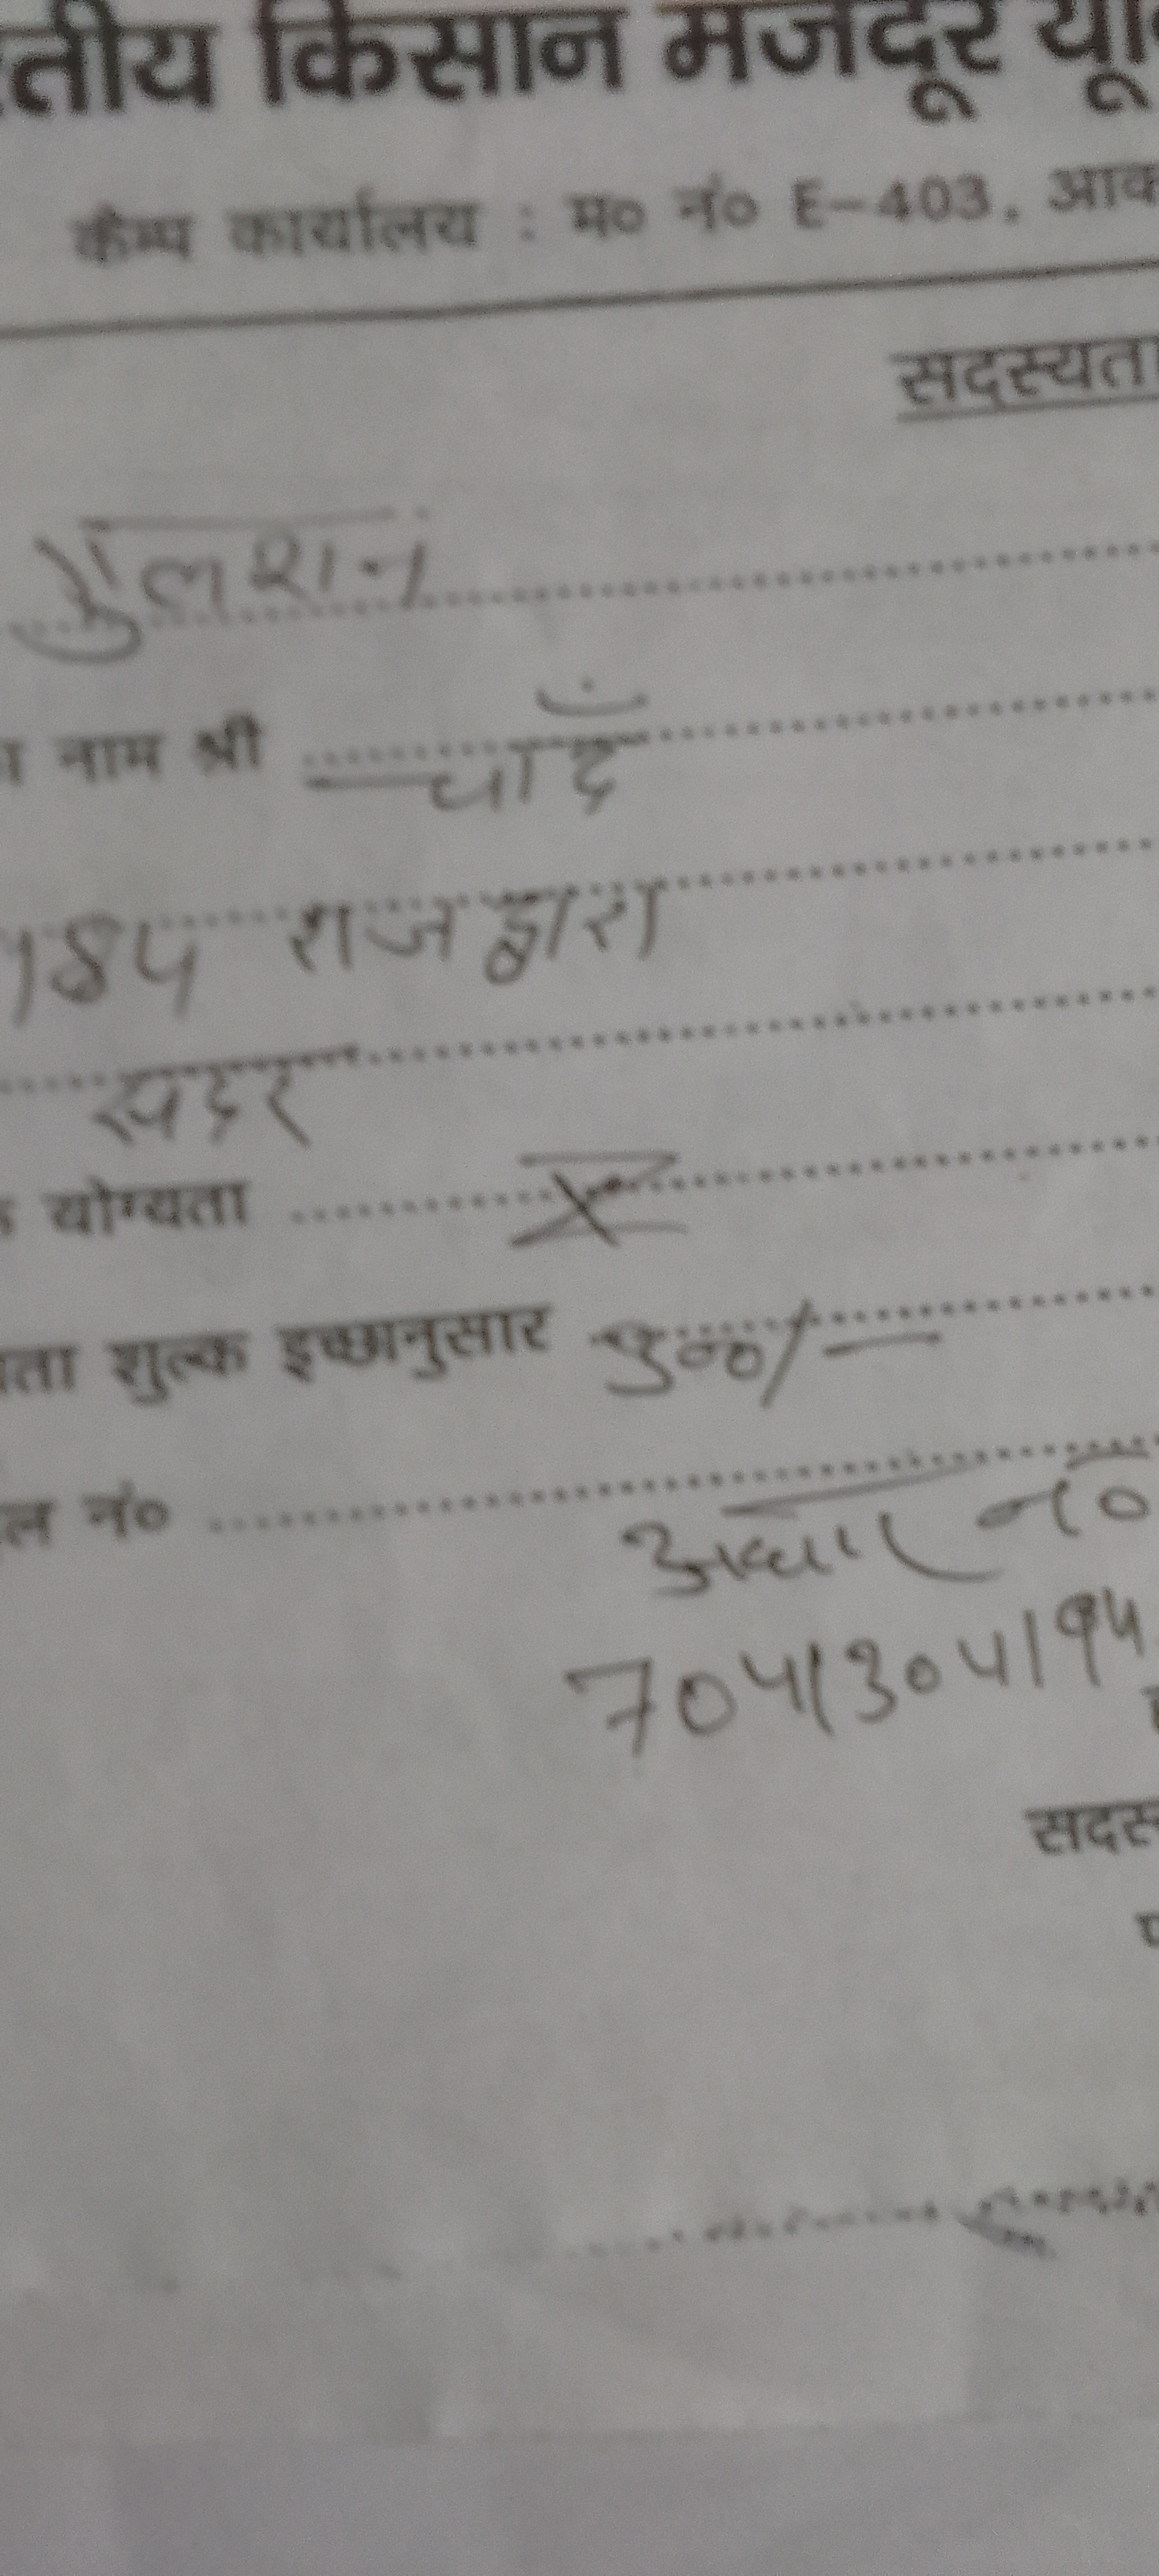 रतीय किसान मजदूर यू
कैम्प कार्यालय : म० नं० E-403, आव
सदस्यता
गुलशन
नाम श्री चाँद
184 राजद्वारा
सदर
योग्यता X
ता शुल्क इच्छानुसार 500/-
ल नं०
आधार नं०
704130419
सदस